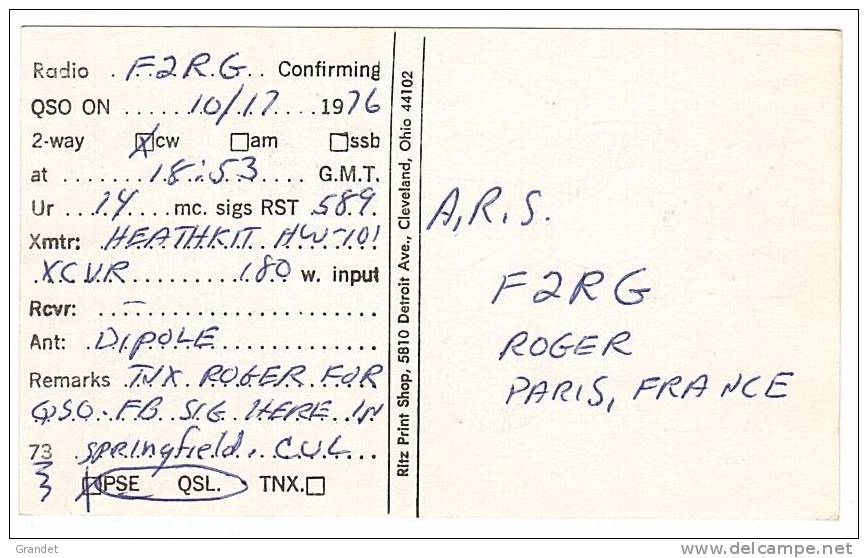 Radio F2RG Confirming
QSO ON 10/17 1976
2-way ☒cw ☐am ☐ssb
at 18:53 G.M.T.
Ur 14 mc. sigs RST 589
Xmtr: HEATHKIT HW-101
XCVR 180 w. input
Rcvr: —
Ant: DIPOLE
Remarks TNX ROGER FOR
QSO. FB SIG HERE IN
73 springfield. C.U.L.
☒PSE QSL. TNX.☐
Ritz Print Shop, 5810 Detroit Ave., Cleveland, Ohio 44102
A.R.S.
F2RG
ROGER
PARIS, FRANCE
Grandet
delcampe.net